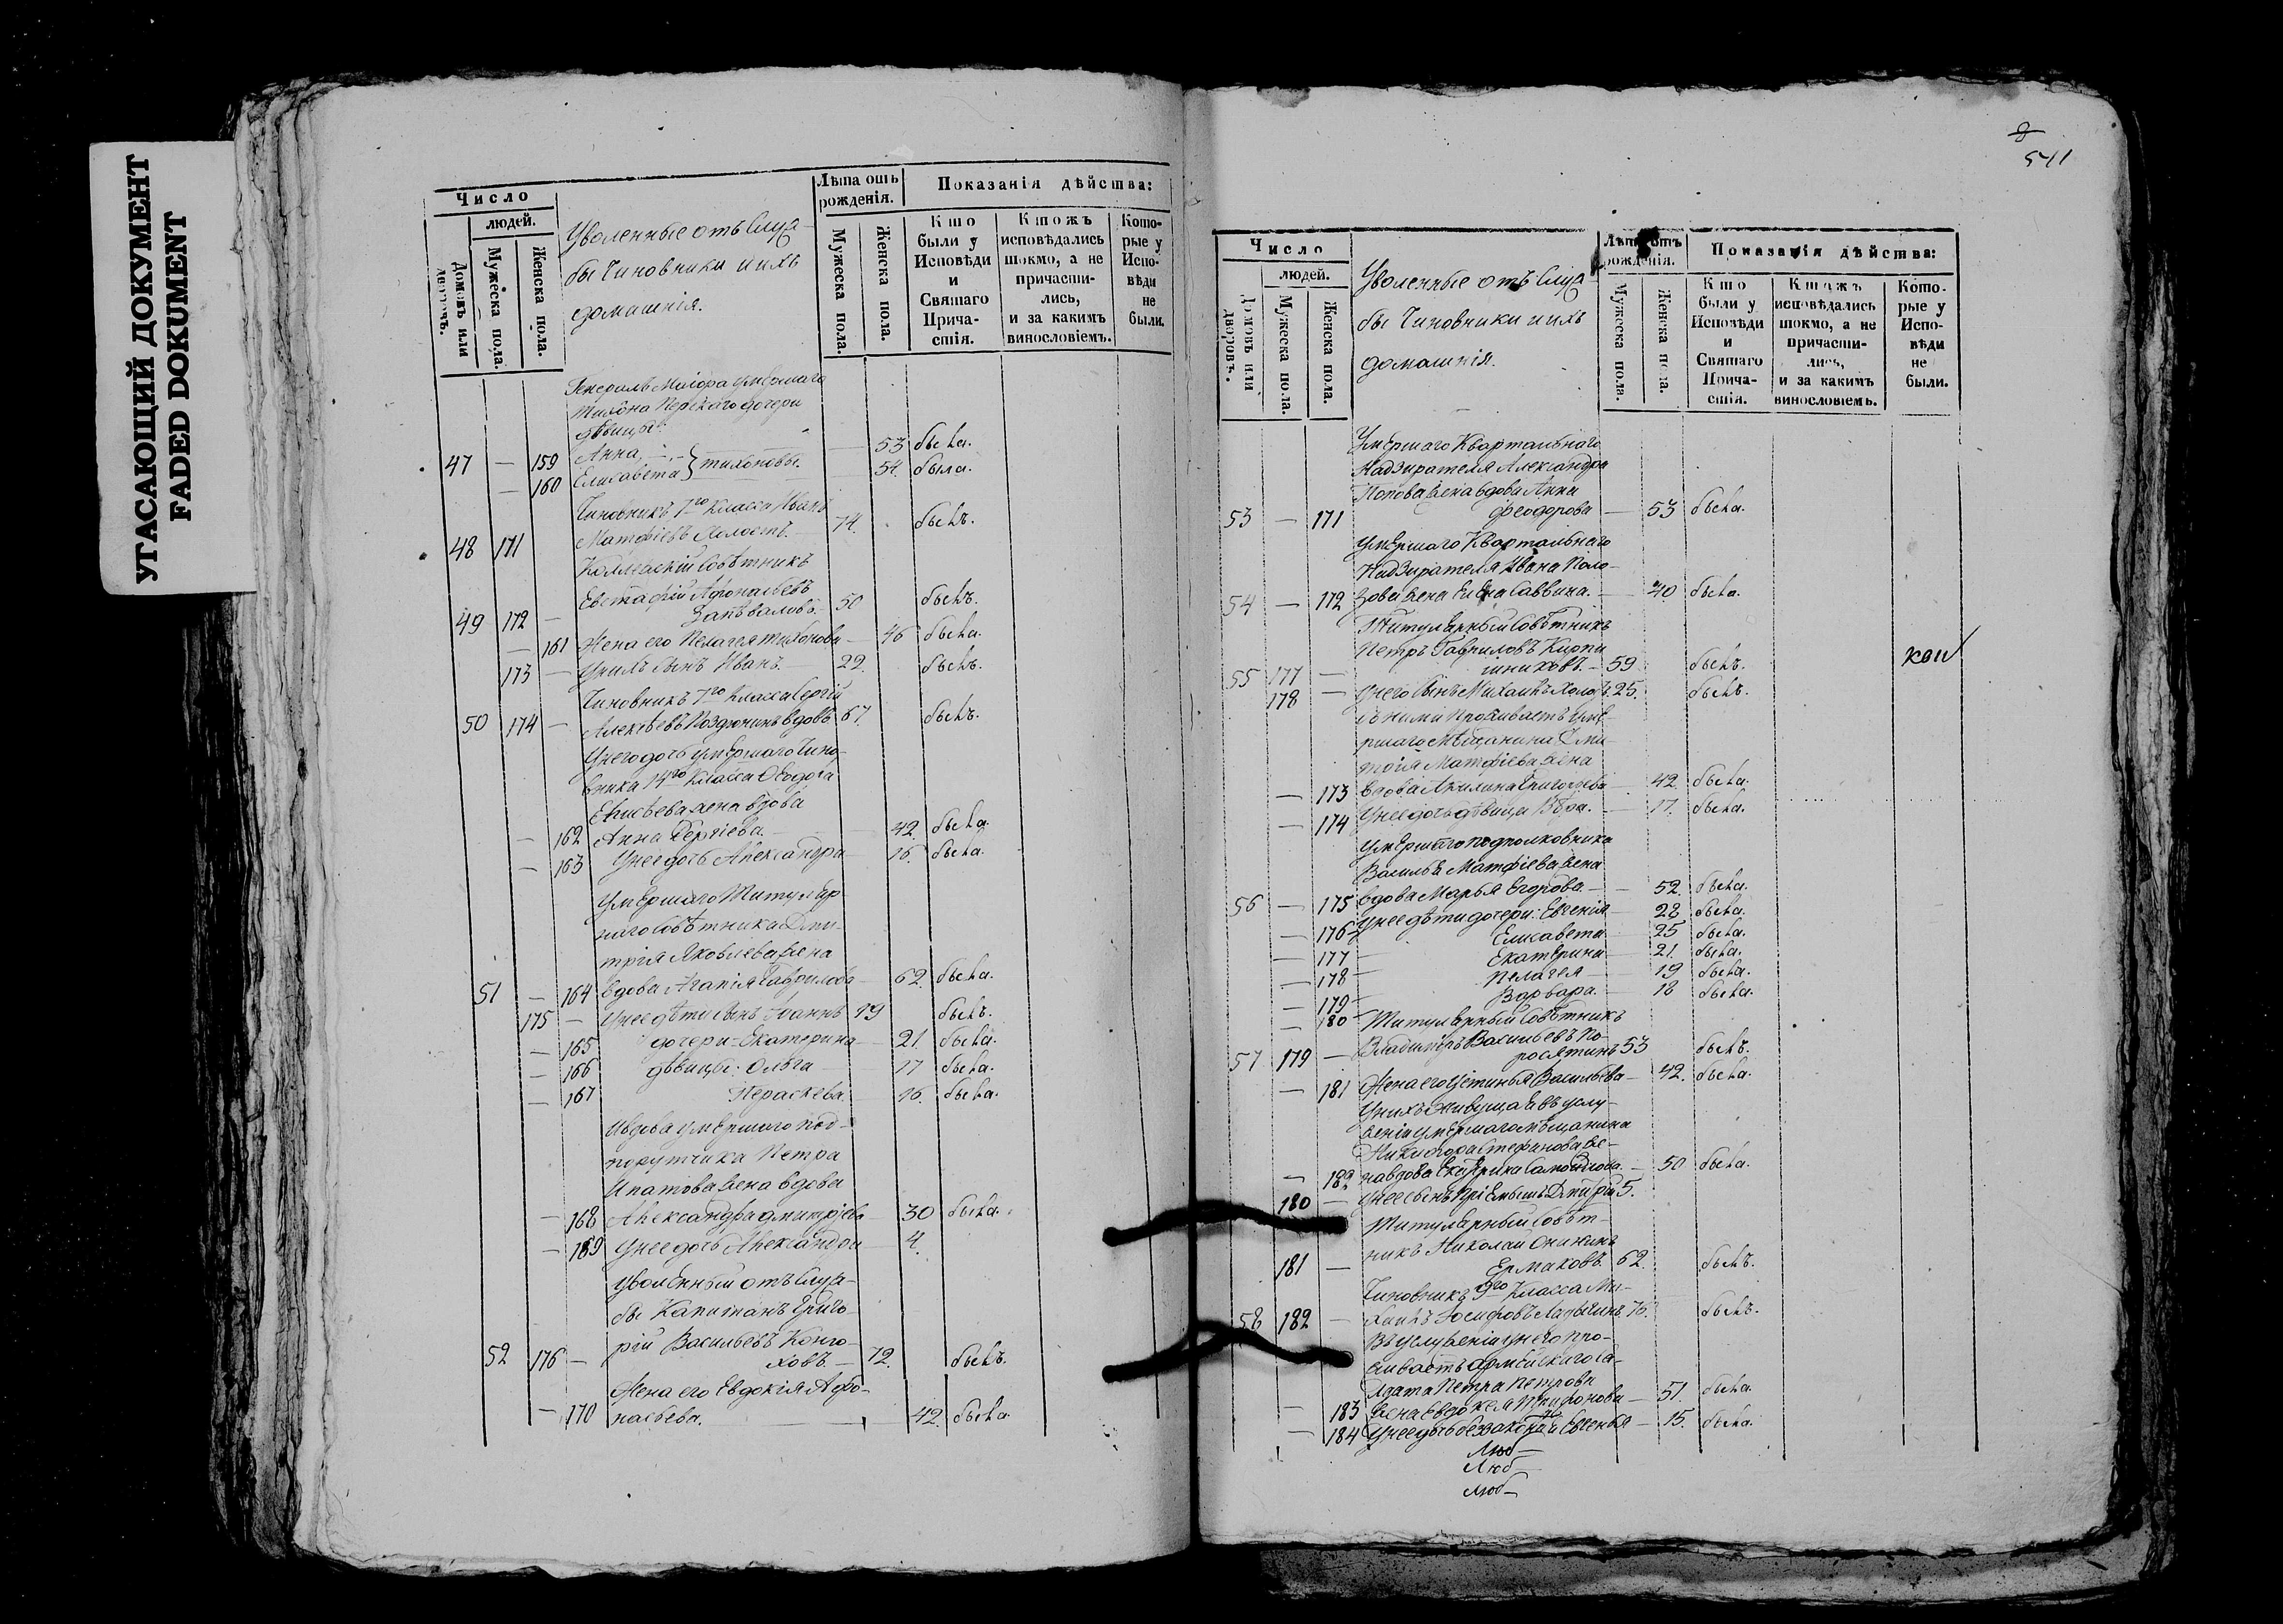 УГАСАЮЩИЙ ДОКУМЕНТ
FADED DOKUMENT
Число
людей.
Домовъ или дворовъ.
Мужеска пола.
Женска пола.
Уволенные отъ Служ-
бы Чиновники и ихъ
домашнія.
Лѣта отъ рожденія.
Мужеска пола.
Женска пола.
Показанія дѣйства:
Кто были у Исповѣди и Святаго Причастія.
Ктожъ исповѣдались токмо, а не причастились, и за какимъ винословіемъ.
Которые у Исповѣди не были.
Генералъ Маіора умершаго
Тихона Перскаго дочери
дѣвицы:
47 — 159 Анна — 53 была.
— 160 Елисавета } Тихоновы. 54 была.
Чиновникъ 7го Класса Иванъ
48 171 Матфіевъ Холостъ. — 74. былъ.
Коллежскій Совѣтникъ
Евстафій Афонасьевъ
49 172 — Запѣваловъ. — 50 былъ.
— 161 Жена его Пелагея Тихонова — 46 была.
173 — У нихъ сынъ Иванъ. — 22. былъ.
Чиновникъ 7го Класса Сергій
50 174 — Алексѣевъ вдовъ 67. былъ.
У него дочь умершаго Чино-
вника 14го Класса Ѳеодора
Елисѣева жена вдова
— 162 Анна Сергіева. — 42 была.
— 163 У нее дочь Александра — 16. была.
Умершаго Титуляр-
наго Совѣтника Дми-
трія Яковлева жена
51 — 164 вдова Агапія Гаврилова — 62. была.
175 — У нее дѣти сынъ Іоаннъ 19 былъ.
— 165 дочери: Екатерина — 21. была.
— 166 дѣвицы: Ольга — 17 была.
— 167 Параскева. 16. была.
Вдова умершаго под-
порутчика Петра
Ипатова жена вдова
— 168 Александра Дмитріева — 30 была.
— 169 У нее дочь Александра 4.
Уволенный отъ Служ-
бы Капитанъ Григо-
рій Васильевъ
52 176 — ховъ. — 72. былъ.
Жена его Евдокія Афо-
— 170 насьева. — 42 была.
8
511
Число
людей.
Домовъ или дворовъ.
Мужеска пола.
Женска пола.
Уволенные отъ Служ-
бы Чиновники и ихъ
домашнія.
Лѣта отъ рожденія.
Мужеска пола.
Женска пола.
Показанія дѣйства:
Кто были у Исповѣди и Святаго Причастія.
Ктожъ исповѣдались токмо, а не причастились, и за какимъ винословіемъ.
Которые у Исповѣди не были.
Умершаго Квартальнаго
Надзирателя Александра
Попова жена вдова Анна
53 — 171 Феодорова — 53 была.
Умершаго Квартальнаго
Надзирателя Ивана Поло-
54 — 172 зова жена Елена Саввина. — 40. была.
Титулярный Совѣтникъ
Петръ Гавриловъ Кирпи
55 177 — шниковъ. — 59 былъ.
178 — У него сынъ Михаилъ холостъ. 25. былъ.
Съ ними проживаетъ уме-
ршаго Мѣщанина Дми-
трія Матфіева жена
— 173 вдова Акилина Григорьева — 42. была.
— 174 У нее дочь дѣвица Вѣра. — 17. была.
Умершаго подполковника
Василья Матфіева жена
56 — 175 вдова Марья Егорова. — 52. была.
— 176 У нее дѣти дочери: Евгенія — 28 была.
— 177 — Елисавета 25 была.
— 178 — Екатерина — 21. была.
— 179 — Пелагея — 19 была.
— 180 Варвара. — 18 была.
Титулярный Совѣтникъ
57 179 — Владиміръ Васильевъ По-
росятинъ 53 былъ.
— 181 Жена его Устинья Васильева — 42. была.
У нихъ живущая въ услу-
женіи умершаго мѣщанина
Никифора Стефанова же-
— 182 на вдова Екатерина Самойлова. — 50 была.
180 — У нее сынъ пріемышъ Дмитрій 5.
Титулярный Совѣт-
никъ Николай
181 — Ермаковъ. 62. былъ.
Чиновникъ 9го Класса Ми-
58 182 — хаилъ Іосифовъ 76. былъ.
Въ услуженіи у него про-
живаетъ Армейскаго Са-
лдата Петра Петрова
— 183 жена Евдокея Трифонова — 51. была.
— 184 У нее дочь незаконная Евгенья — 15. была.
Люб—
Люб—
Люб—